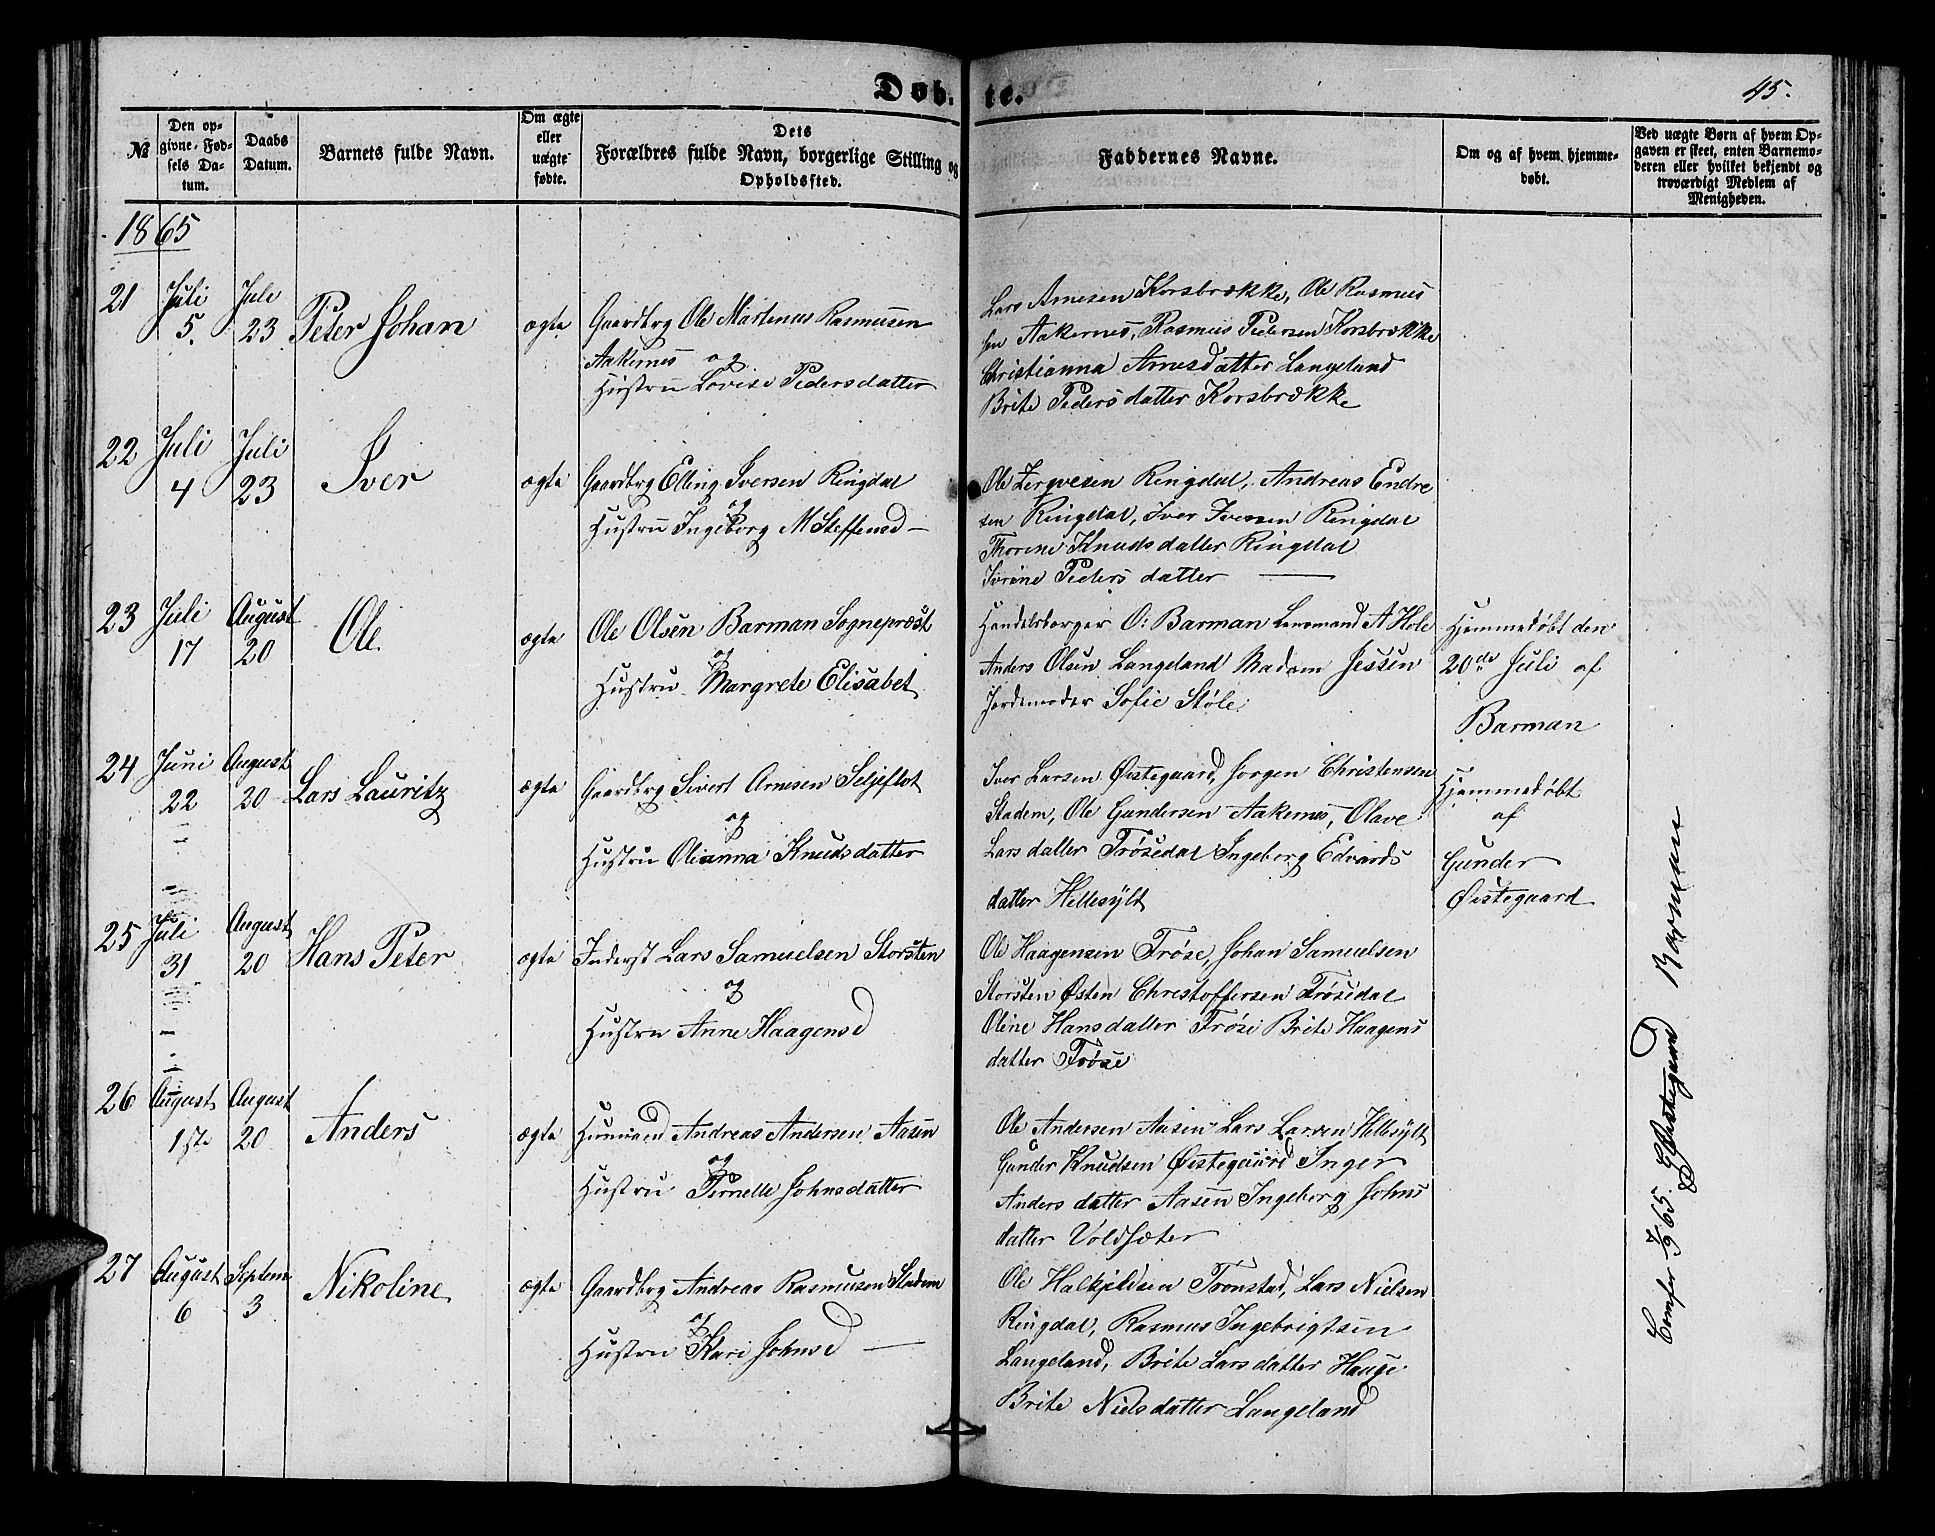 Døb-te.
45.
№
Den opgivne Fødsels Datum.
Daabs Datum.
Barnets fulde Navn.
Om ægte eller uægte fødte.
Dets Forældres fulde Navn, borgerlige Stilling og Opholdssted.
Faddernes Navne.
Om og af hvem hjemmedøbt.
Ved uægte Børn af hvem Opgaven er skeet, enten Barnemoderen eller hvilket bekjendt og troværdigt Medlem af Menigheden.
1865
21 Juli 5. Juli 23 Peter Johan ægte
Gaardbrg Ole Martinus Rasmusen
Aakernes og
Hustru Lovise Pedersdatter
Lars Arnesen Korsbrække, Ole Rasmus
sen Aakernes, Rasmus Pedersen Korsbrække
Christianna Arnesdatter Langeland
Brite Pedersdatter Korsbrække
22 Juli 4 Juli 23 Iver ægte
Gaardbrg Elling Iversen Ringdal
og
Hustru Ingeborg M Steffensd —
Ole Ringdal, Andreas Endre
sen Ringdal, Iver Iversen Ringdal
Thorine Knudsdatter Ringdal
Pedersdatter —
23 Juli 17 August 20 Ole ægte
Ole Olsen Barman Sognepræst
og
Hustru Margrete Elisabet
Handelsborger O: Barman Lensmand A Hole
Anders Olsen Langeland Madam Jessen
Jordemoder Sofie Støle
Hjemmedøbt den
20de Juli af
Barman
24 Juni 22 August 20 Lars Lauritz ægte
Gaardbrg Sivert Arnesen Seljeflot
og
Hustru Olianna Knudsdatter
Iver Larsen Øistegaard, Jørgen Christensen
Stadem, Ole Gundersen Aakernes, Olave
Larsdatter Frøsedal Ingeborg Edvards
datter Hellesylt
Hjemmedøbt
af
Gunder
Øistegaard
25 Juli 31 August 20 Hans Peter ægte
Inderst Lars Samuelsen Storsten
og
Hustru Anne Haagensd
Ole Haagensen Frøse, Johan Samuelsen
Storsten Østen Christoffersen Frøsedal
Oline Hansdatter Frøse Brite Haagens
datter Frøse
26 August 1ste August 20 Anders ægte
Huusmand Andreas Andersen Aasen
og
Hustru Pernelle Johnsdatter
Ole Andersen Aasen Lars Larsen Hellesylt
Gunder Knudsen Øistegaard Inger
Andersdatter Aasen Ingeborg Johns
datter Voldsæter
27 August 6 Septem 3 Nikoline ægte
Gaardbrg Andreas Rasmusen Stadem
og
Hustru Kari Johnsd —
Ole Halkjeldsen Tronstad, Lars Nielsen
Ringdal, Rasmus Ingebrigtsen
Langeland, Brite Larsdatter Hauge
Brite Nielsdatter Langeland
65. GØistegaard Barman